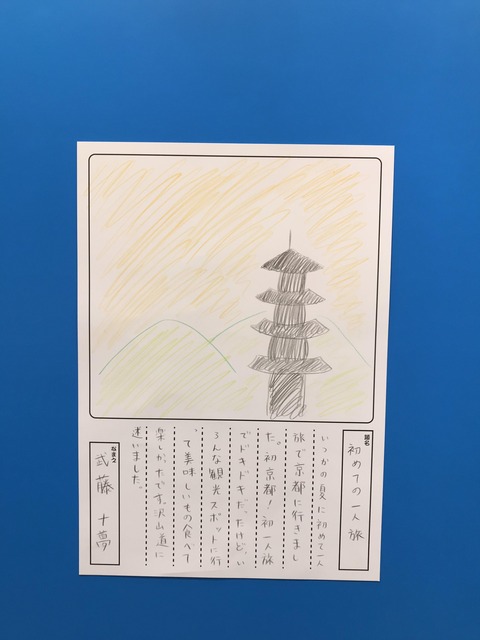 題名
初めての一人旅
いつかの夏に初めて一人
旅で京都に行きまし
た。初京都！初一人旅
でドキドキだったけど、い
ろんな観光スポットに行
って美味しいもの食べて
楽しかったです。沢山道に
迷いました。
なまえ
武藤 十夢